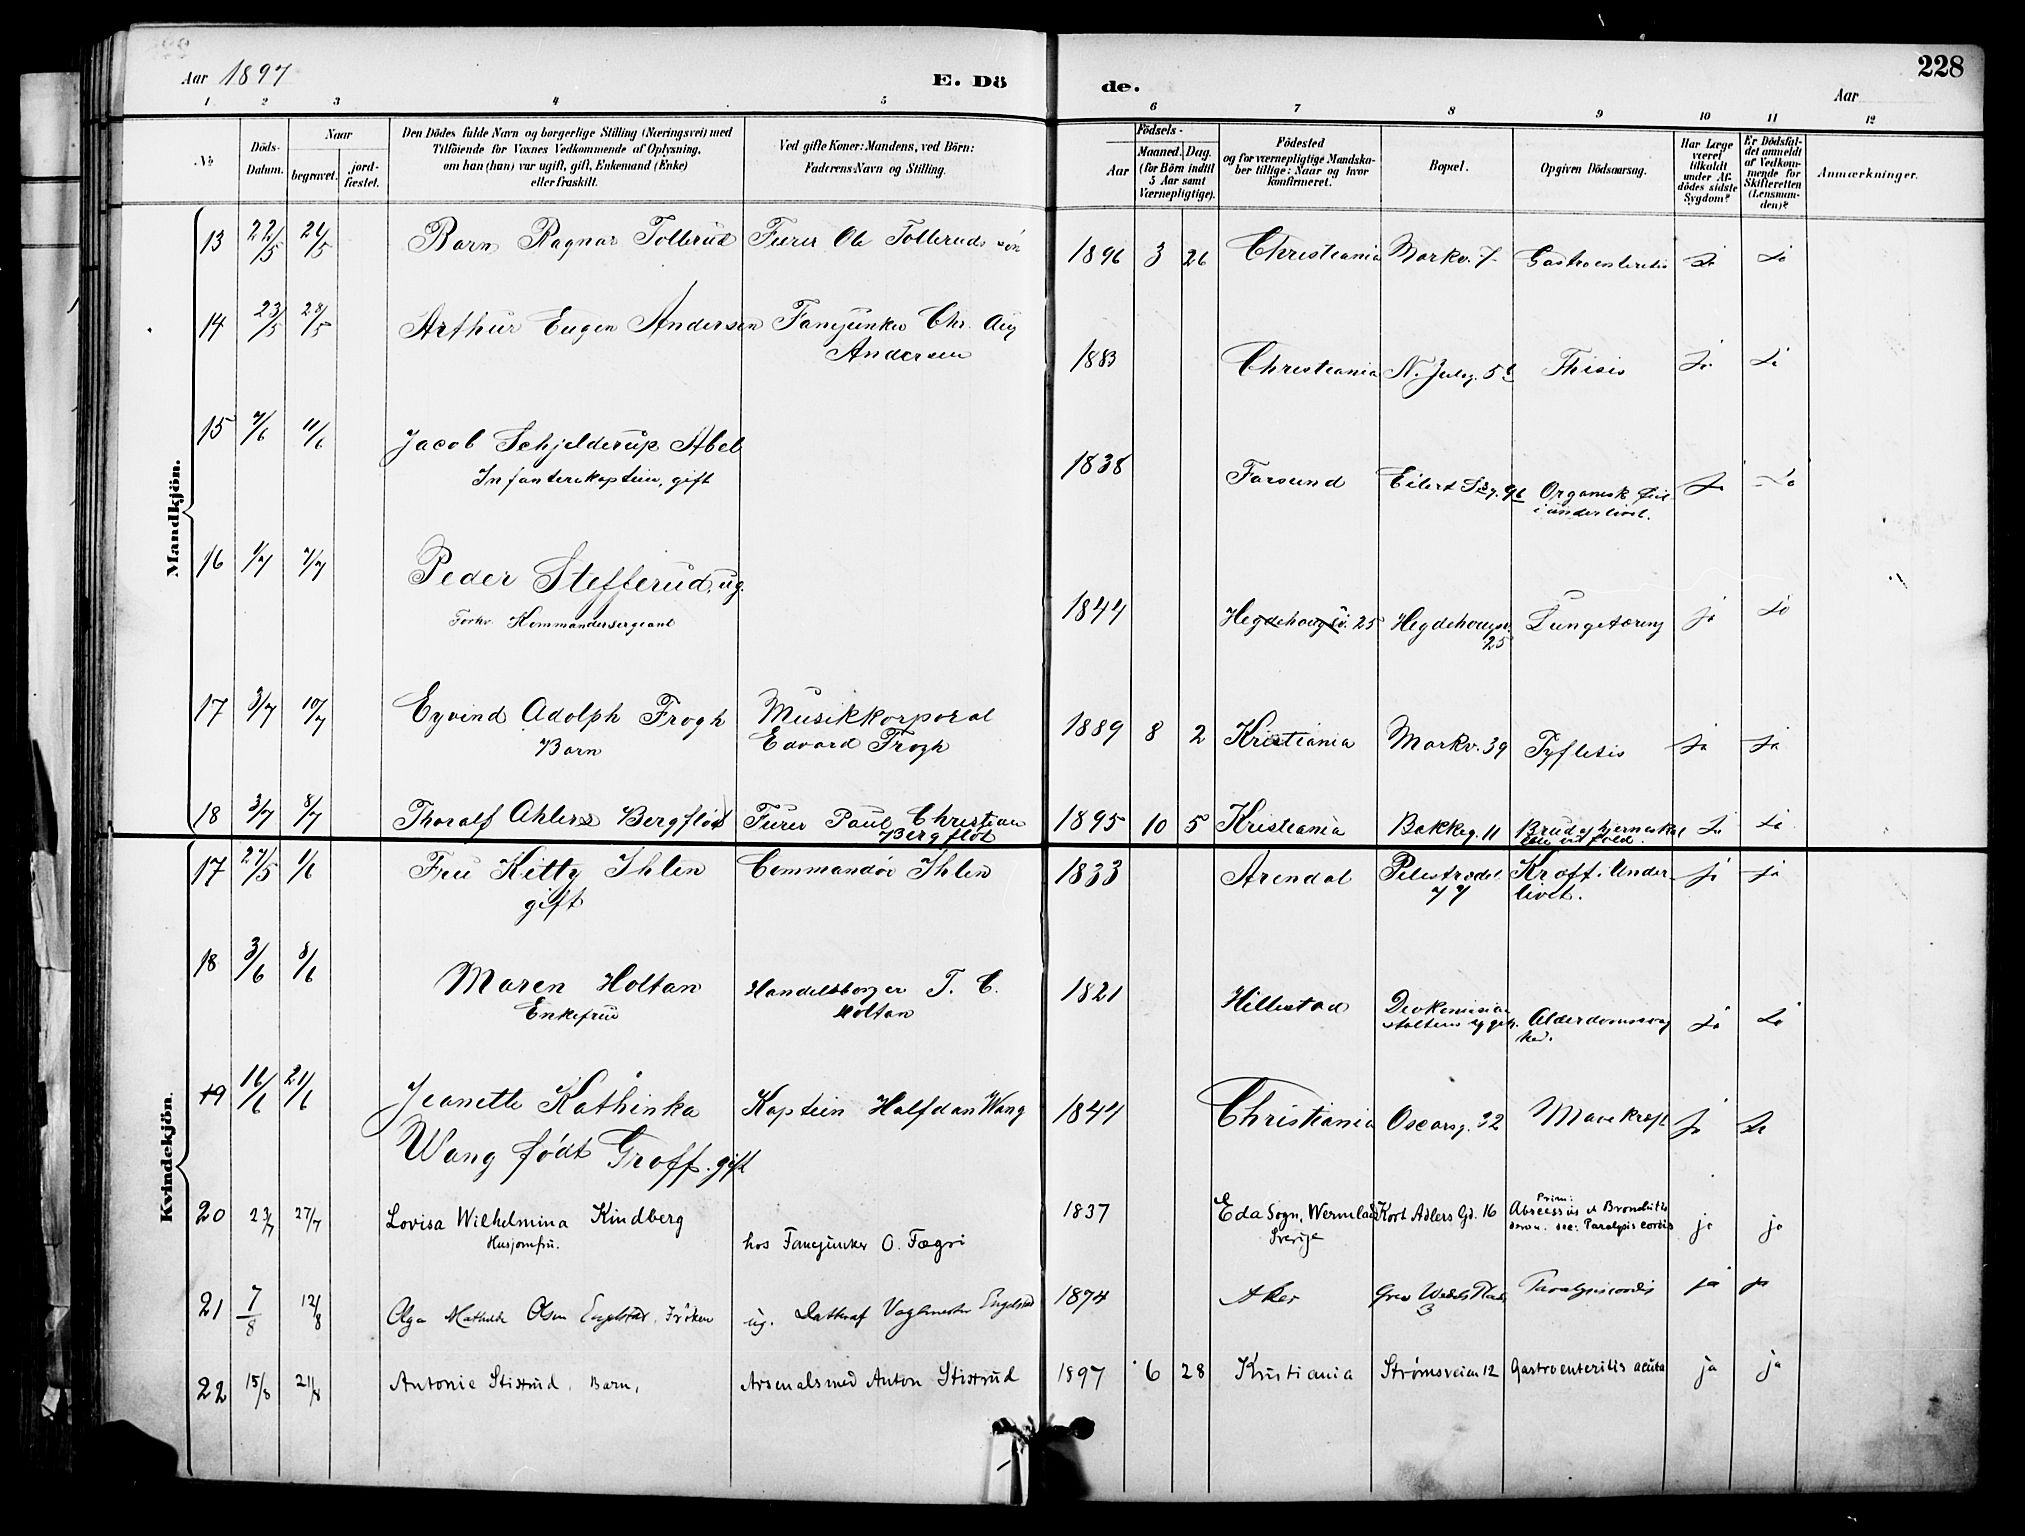 Aar 1897
E. Dö
de.
228
Aar
1 2 3 4 5 6 7 8 9 10 11 12
No
Döds-Datum.
Naar
begravet.
jord-fæstet.
Den Dödes fulde Navn og borgerlige Stilling (Næringsvei) med
Tilföiende for Voxnes Vedkommende af Oplysning,
om han (hun) var ugift, gift, Enkemand (Enke)
eller fraskilt.
Ved gifte Koner: Mandens, ved Börn:
Faderens Navn og Stilling.
Födsels-
Aar
Maaned. Dag.
(for Börn indtil
5 Aar samt
Værnepligtige).
Födested
og for værnepligtige Mandska-
ber tillige: Naar og hvor
konfirmeret.
Bopæl.
Opgiven Dödsaarsag.
Har Læge
været
tilkaldt
under Af-
dödes sidste
Sygdom?
Er Dödsfal-
det anmeldt
af Vedkom-
mende for
Skifteretten
(Lensman-
den)?
Anmærkninger.
Mandkjön.
13 22/5 26/5 Barn Ragnar Tollerud Furer Ole Tolleruds søn 1896 3 26 Christiania Markv. 7 Gastroenteritis Ja Ja
14 23/5 28/5 Arthur Eugen Andersen Fanejunker Chr. Aug
Andersen
1883 Christiania N. Juelsg. 5 Thisis Ja Ja
15 7/6 11/6 Jacob Schjelderup Abel
Infanterikaptein, gift
1838 Farsund Eilert 96 Organisk Feil
i underlivet. Ja Ja
16 1/7 7/7 Peder Stefferud, ug.
Forhv. Kommandersergeant
1844 Hegdehougsv. 25 Hegdehougsv.
25
Lungetæring ja Ja
17 3/7 10/7 Eyvind Adolph Frogh
Barn
Musikkorporal
Edvard Frogh
1889 8 2 Kristiania Markv. 39 Tyflitis Ja ja
18 3/7 8/7 Thoralf Ahlers Bergfløt Furer Paul Christian
Bergfløt
1895 10 5 Kristiania Bakkeg. 11 Brud Ja Ja
Kvindekjön.
17 27/5 1/6 Fru Kitty Ihlen
gift
Commandør Ihlen 1833 Arendal Pilestrædet
77
Kræft i Under
livet. ja ja
18 3/6 8/6 Maren Holtan
Enkefrue
Handelsborger T. C.
Holtan
1821 Hillestad Alderdomssvag
hed. Ja Ja
19 16/6 21/6 Jeanette Kathinka
Wang født Groff. gift
Kaptein Halfdan Wang 1844 Christiania Oscarsg. 32 Mavekræft ja Ja
20 23/7 27/7 Lovisa Wilhelmina Kindberg
Husjomfru.
hos Fanejunker O. Fægri
1837 Eda Sogn, Wermland
Sverige
Kort Adlers Gd. 16 Prim:
Abscessus et Bronchitis
sec: Paralysis cordis ja ja
21 7/8 12/8 Olga Mathilde Olsen Engelstad, Frøken ug. Datter af Vagtmester Engelstad 1874 Aker Grev Wedels Plads
3
Paralysis cordis ja ja
22 15/8 21/8 Antonie Stisrud, Barn, Arsenalsmed Anton Stisrud 1897 6 28 Kristiania Strømsveien 12 Gastroenteritis acuta ja ja